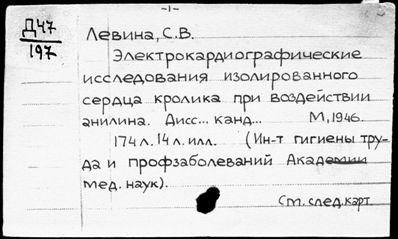 -1-
Д47
197
Левина, С.В.
Электрокардиографические
исследования изолированного
сердца кролика при воздействии
анилина. Дисс... канд... М, 1946.
174 л. 14 л. илл. (Ин-т гигиены тру-
да и профзаболеваний Академии
мед. наук).
См. след. карт